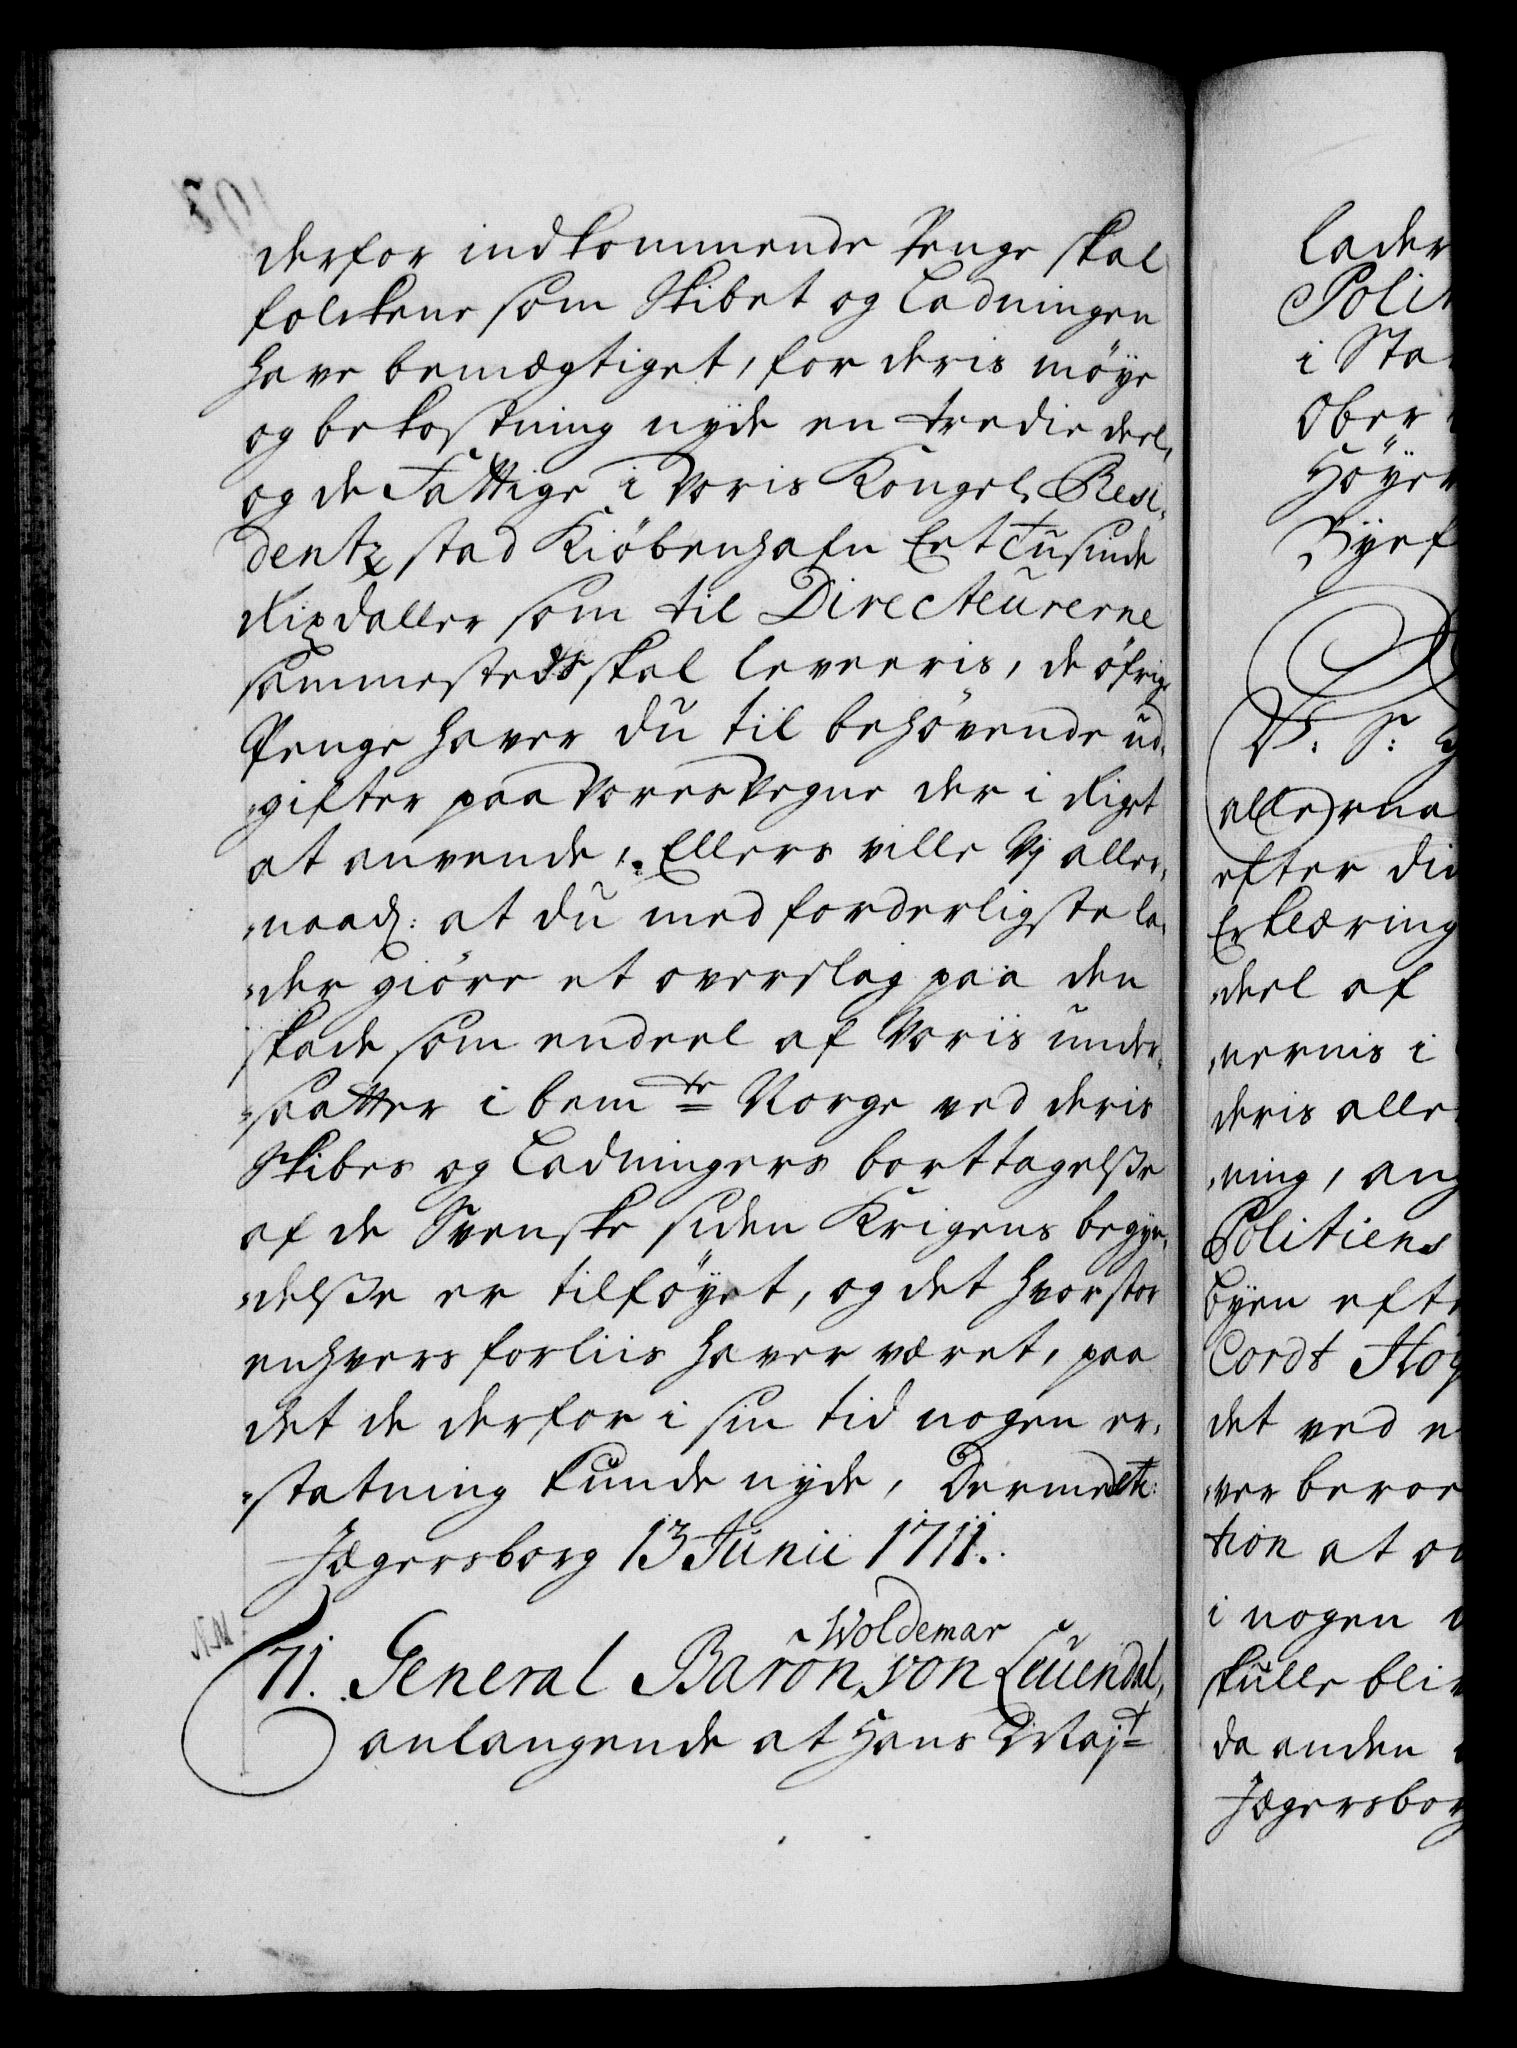 derfor indkommende Penge skal
folckene som Skibet og Ladningen
have bemægtiget, for deris möye
og bekostning nyde en tredie deel,
og de Fattige i Voris Kongel. Resi-
dentz stad Kiöbenhafn Et Tusinde
Rixdaller som til Directeurerne
sammesteds skal leveeris, de öfrige
Penge haver du til behövende ud-
gifter paa Vores Vegne der i Riget
at anvende, Ellers ville Vj aller-
naad: at du med forderligste la-
der giöre et overslag paa den
skade som endeel af Voris under-
saatter i bemte Norge ved deris
Skibes og Ladningers borttagelsse
af de Svenske siden Krigens begyn-
delsse er tilföyet, og det hvor stor
enhvers forliis haver været, paa
det de derfor i sin tid nogen er-
statning kunde nyde, Dermed etc:
Jægersborg 13 Junii 1711.
Woldemar
71. General Baron von Leuendal,
anlangende at Hans Majt
lader
Polit
i Sta
Ober
Höye
Byef
V. S:
allerna
efter di
Erklæring
deel af
nernis i
deris alle
ning, ang
Politiens
byen eft
Cordt Hoy
det ved
ver beroe
tion at
i nogen
skulle bli
da anden
Jægersborg